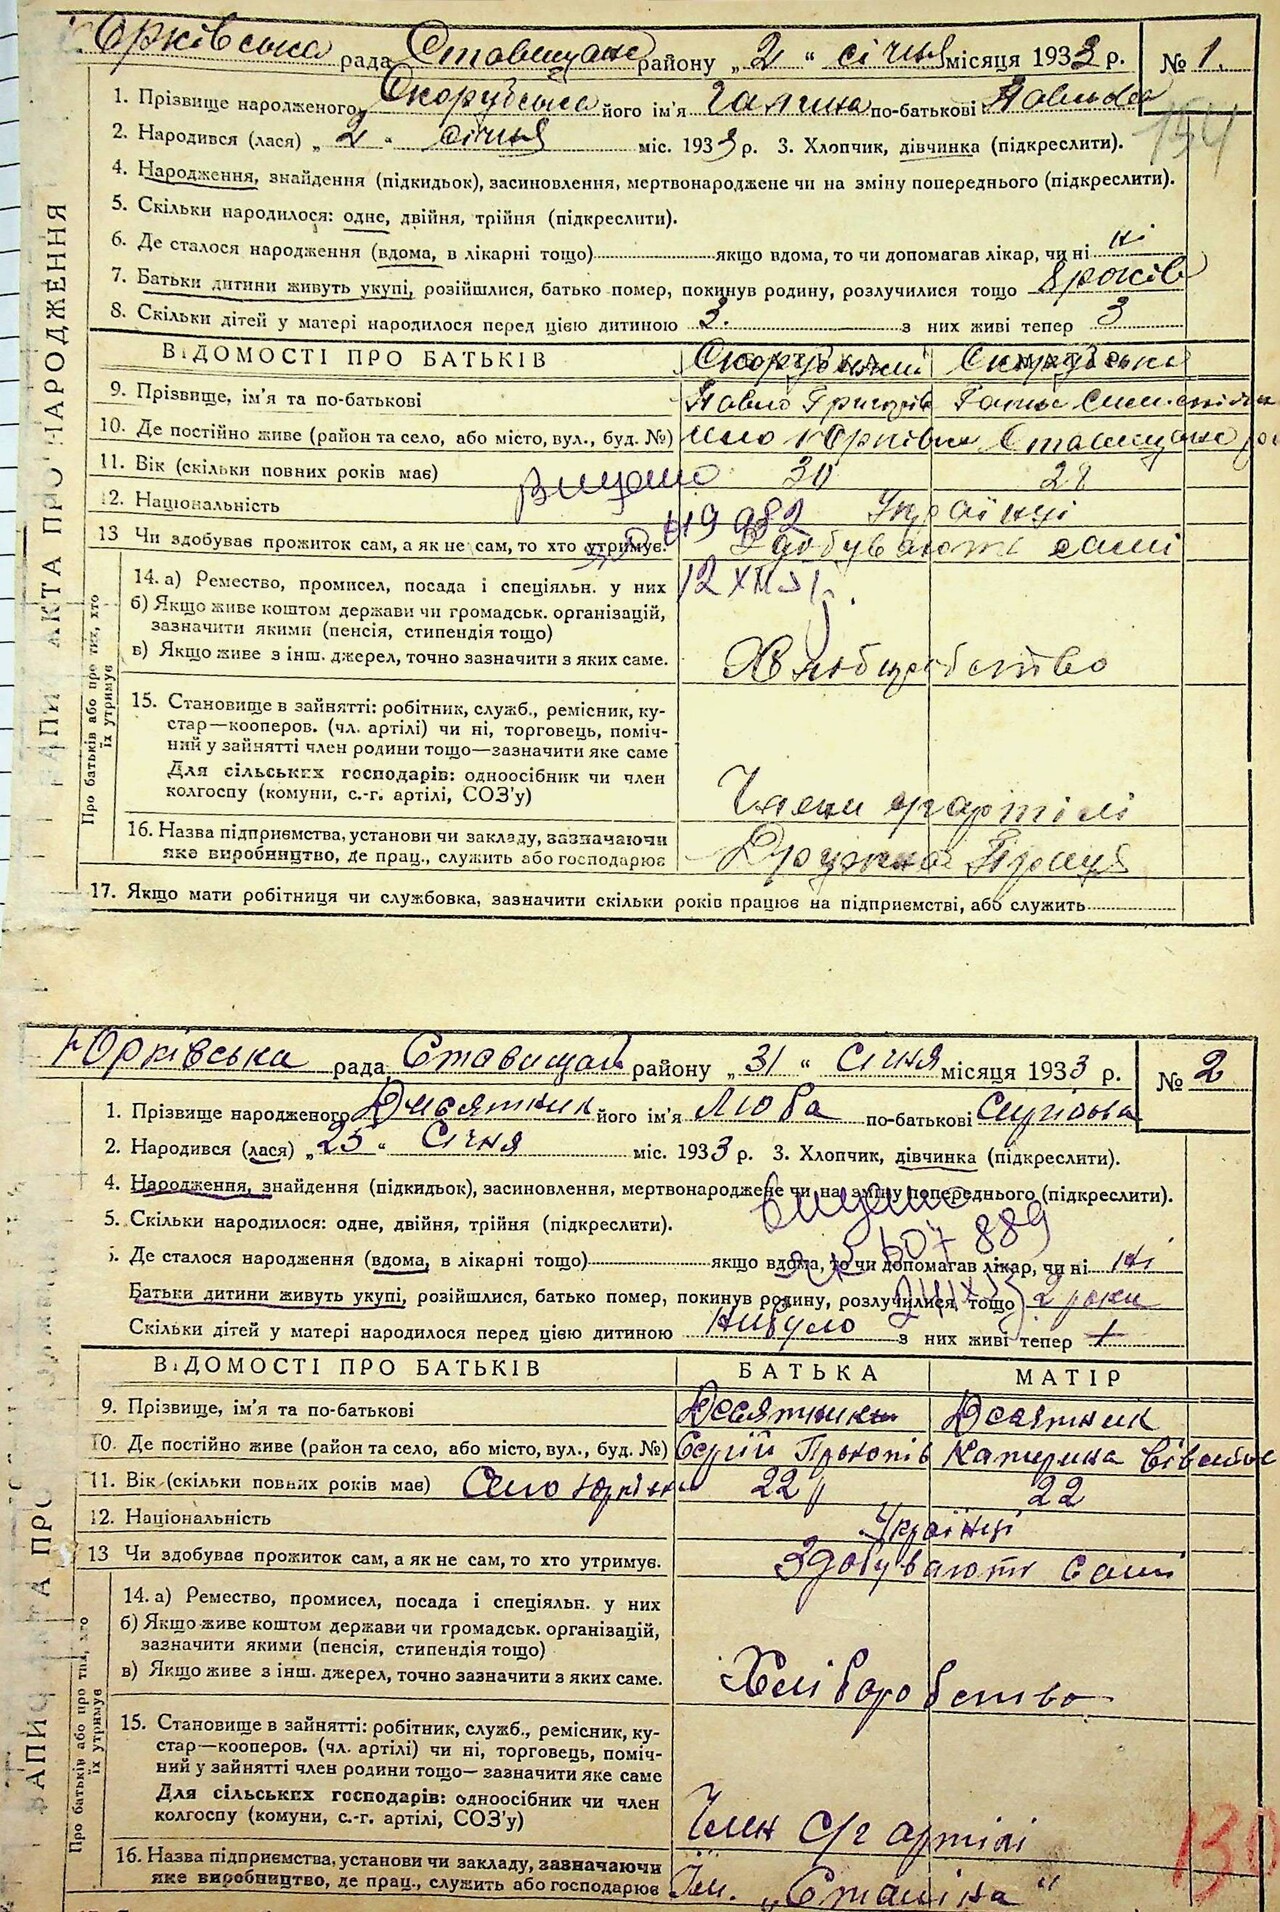 Юрківська рада Ставищан району „ 2 “ січня місяця 1933 р. № 1.
154
1. Прізвище народженого Скорубська його ім'я Галина по-батькові
2. Народився (лася) „ 2 “ січня міс. 1933 р. 3. Хлопчик, дівчинка (підкреслити).
4. Народження, знайдення (підкидьок), засиновлення, мертвонароджене чи на зміну попереднього (підкреслити).
5. Скільки народилося: одне, двійня, трійня (підкреслити).
6. Де сталося народження (вдома, в лікарні тощо) якщо вдома, то чи допомагав лікар, чи ні ні
7. Батьки дитини живуть укупі, розійшлися, батько помер, покинув родину, розлучилися тощо 8 років
8. Скільки дітей у матері народилося перед цією дитиною 3. з них живі тепер 3
ВІДОМОСТІ ПРО БАТЬКІВ БАТЬКА МАТІР
Скорубський Скорубська
9. Прізвище, ім'я та по-батькові Павло Григорів Ганна
10. Де постійно живе (район та село, або місто, вул., буд. №) село Юрківка Ставищанс
11. Вік (скільки повних років має) 30 28
Видано
12. Національність Українці
419 982
13 Чи здобував прожиток сам, а як не сам, то хто утримує. Здобувають самі
12 XII
14. а) Ремество, промисел, посада і спеціяльн. у них
б) Якщо живе коштом держави чи громадськ. організацій,
зазначити якими (пенсія, стипендія тощо)
в) Якщо живе з інш. джерел, точно зазначити з яких саме. Хліборобство
15. Становище в зайнятті: робітник, служб., ремісник, ку-
стар—кооперов. (чл. артілі) чи ні, торговець, поміч-
ний у зайнятті член родини тощо—зазначити яке саме
Для сільських господарів: одноосібник чи член
колгоспу (комуни, с.-г. артілі, СОЗ'у) Члени с/г артілі
16. Назва підприємства, установи чи закладу, зазначаючи Дружна Праця
яке виробництво, де прац., служить або господарює
17. Якщо мати робітниця чи службовка, зазначити скільки років працює на підприємстві, або служить
ЗАПИС АКТА ПРО НАРОДЖЕННЯ
Про батьків або про тих, хто
їх утримує
Юрківська рада Ставищан району „ 31 “ Січня місяця 1933 р. № 2
1. Прізвище народженого Десятник його ім'я Люба по-батькові Сергіївна
2. Народився (лася) „ 25 “ Січня міс. 1933 р. 3. Хлопчик, дівчинка (підкреслити).
4. Народження, знайдення (підкидьок), засиновлення, мертвонароджене чи на зміну попереднього (підкреслити).
Видано
5. Скільки народилося: одне, двійня, трійня (підкреслити).
607 889
6. Де сталося народження (вдома, в лікарні тощо) якщо вдома, то чи допомагав лікар, чи ні ні
Батьки дитини живуть укупі, розійшлися, батько помер, покинув родину, розлучилися тощо 2 роки
Скільки дітей у матері народилося перед цією дитиною небуло з них живі тепер +
ВІДОМОСТІ ПРО БАТЬКІВ БАТЬКА МАТІР
9. Прізвище, ім'я та по-батькові Десятник Десятник
10. Де постійно живе (район та село, або місто, вул., буд. №) Сергій Прокопів Катерина
11. Вік (скільки повних років має) Село Юрківка 22 22
12. Національність Українці
13 Чи здобував прожиток сам, а як не сам, то хто утримує. Здобувають Самі
14. а) Ремество, промисел, посада і спеціяльн. у них
б) Якщо живе коштом держави чи громадськ. організацій,
зазначити якими (пенсія, стипендія тощо)
в) Якщо живе з інш. джерел, точно зазначити з яких саме. Хліборобство
15. Становище в зайнятті: робітник, служб., ремісник, ку-
стар—кооперов. (чл. артілі) чи ні, торговець, поміч-
ний у зайнятті член родини тощо—зазначити яке саме
Для сільських господарів: одноосібник чи член
колгоспу (комуни, с.-г. артілі, СОЗ'у) Член с/г артілі
130
16. Назва підприємства, установи чи закладу, зазначаючи
яке виробництво, де прац., служить або господарює Ім. „Сталіна“
ЗАПИС АКТА ПРО
Про батьків або про тих, хто
їх утримує